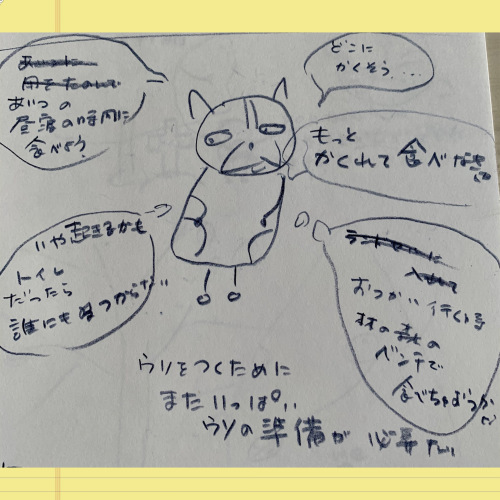 どこに
かくそう...
あいつの
昼寝の時間に
食べよう
もっと
かくれて食べなきゃ
いや起きるかも
トイレ
だったら
誰にも見つからない
おつかい行く時
の
ベンチで
食べちゃおうか
ウソをつくために
またいっぱい
ウソの準備が必要だ